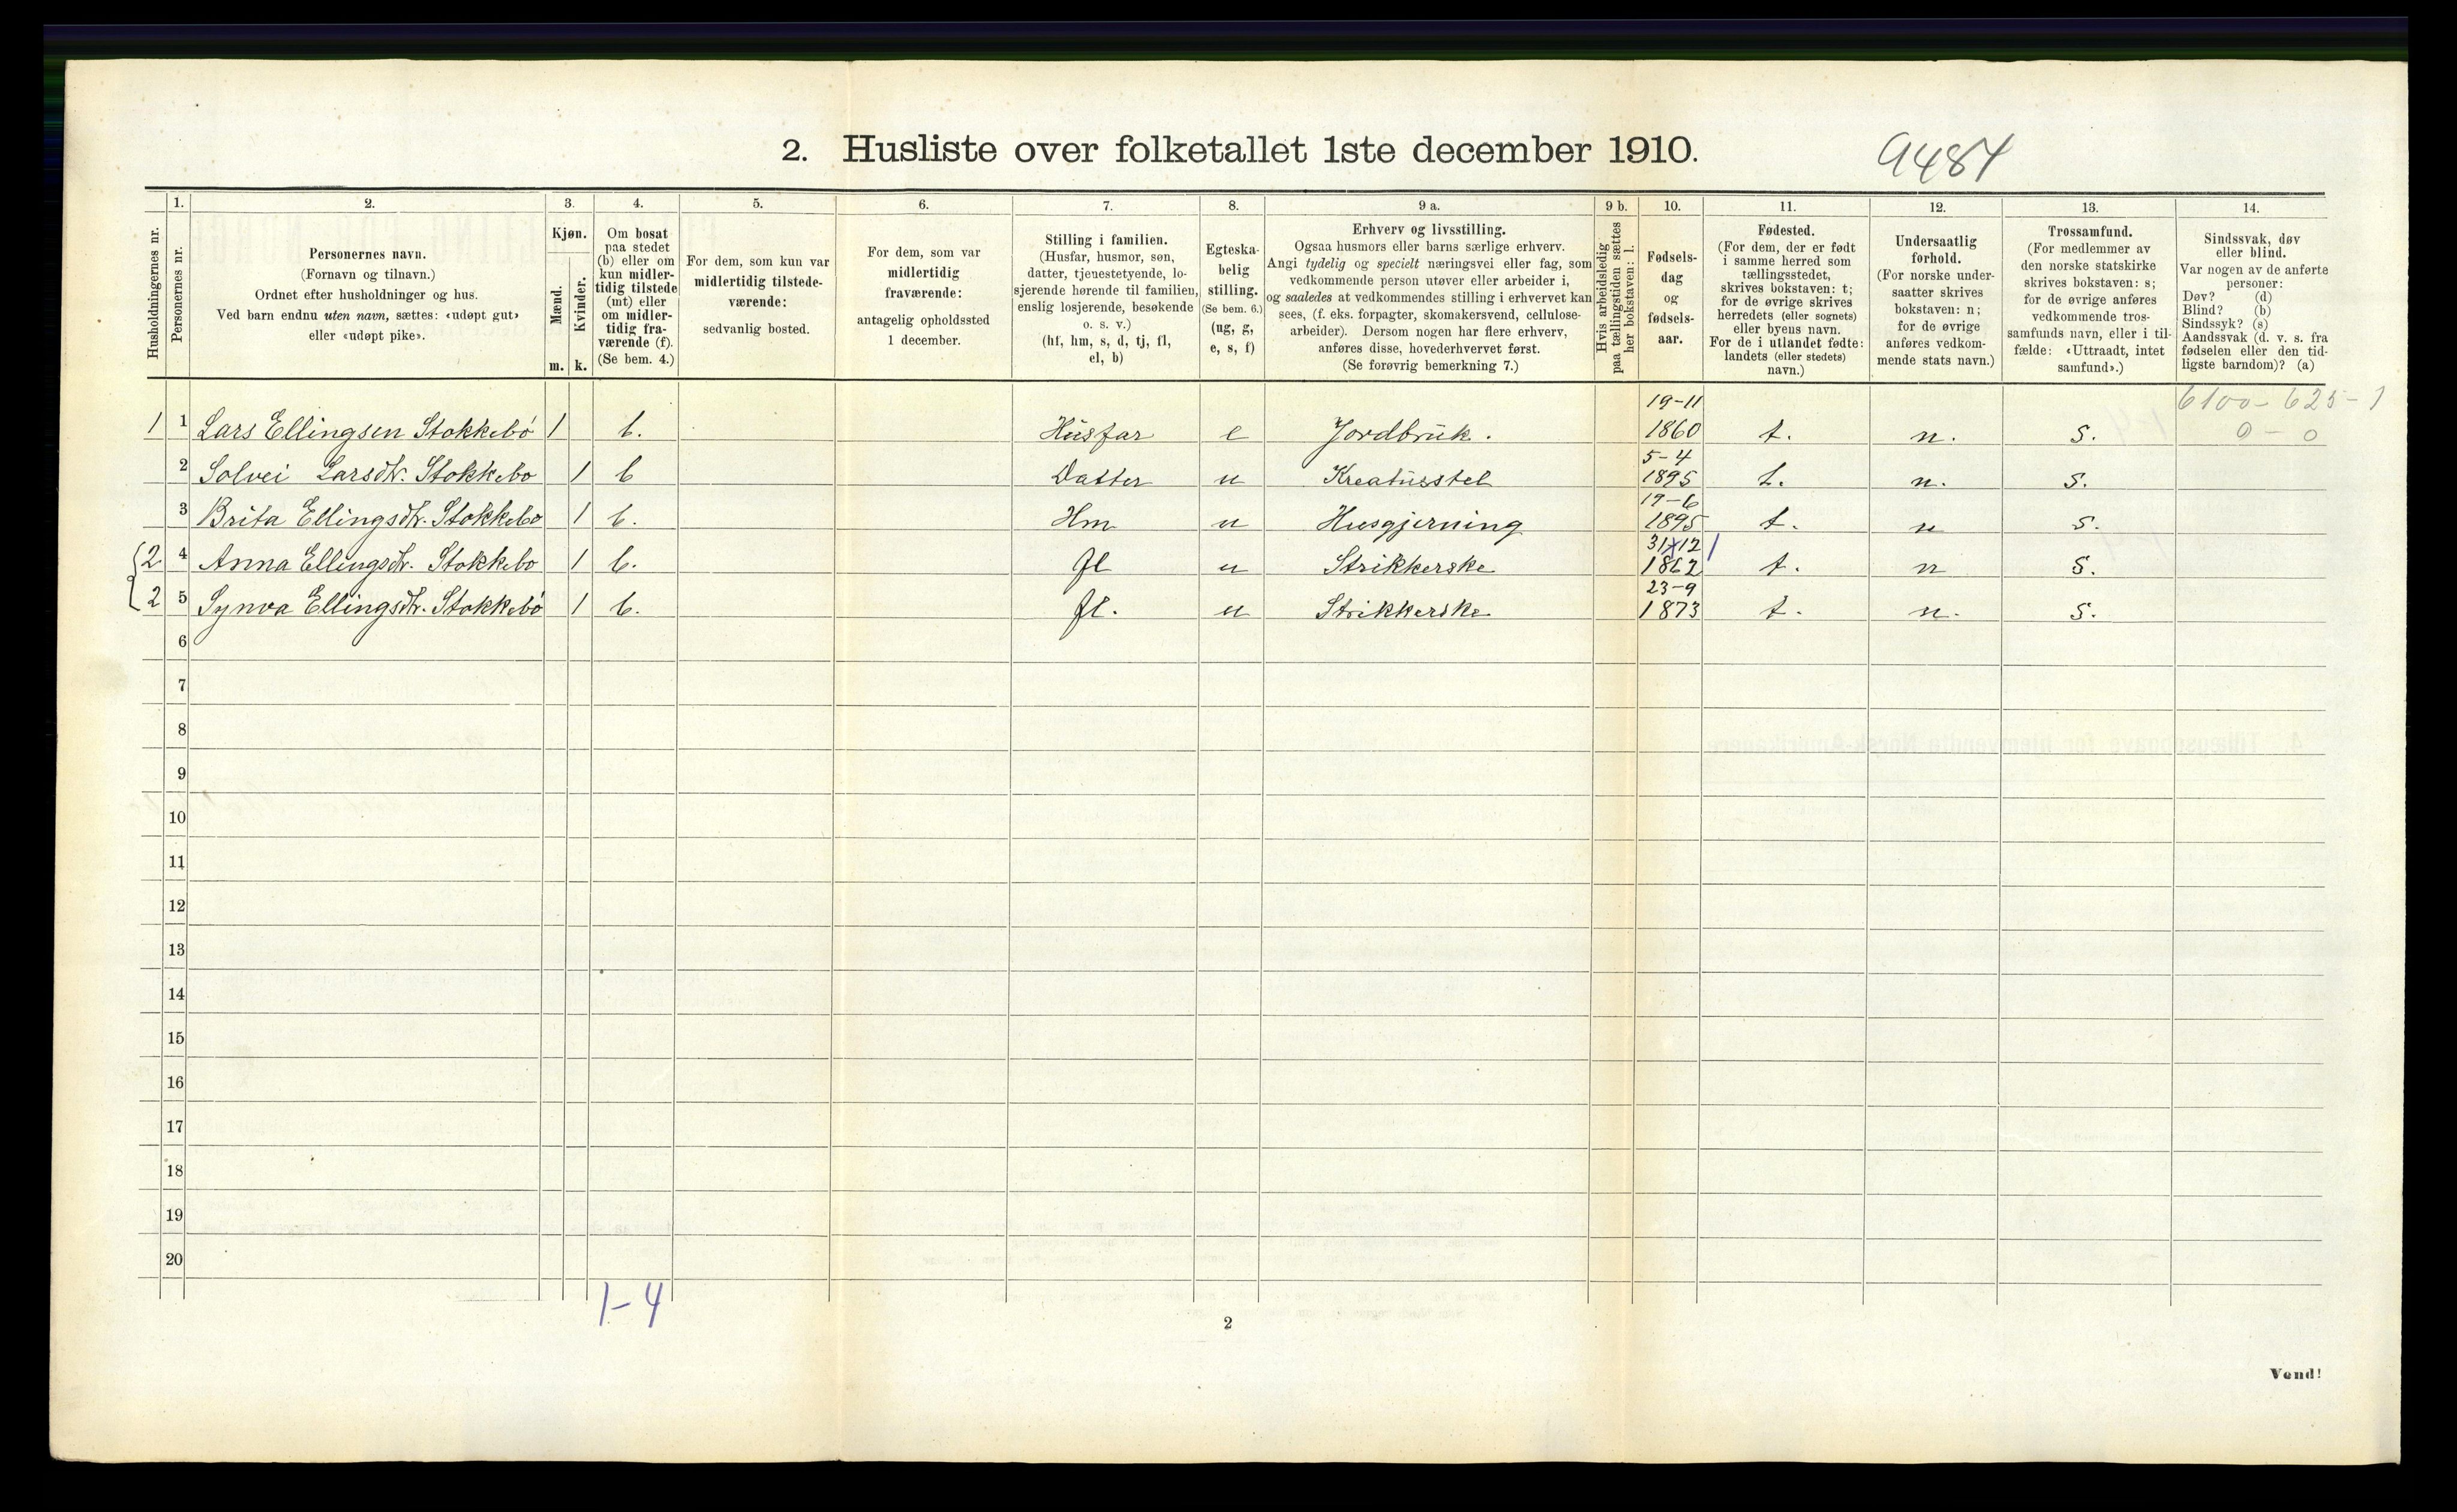 2. Husliste over folketallet 1ste december 1910.
9484
Husholdningernes nr.
1.
Personernes nr.
2.
Personernes navn.
(Fornavn og tilnavn.)
Ordnet efter husholdninger og hus.
Ved barn endnu uten navn, sættes: «udøpt gut»
eller «udøpt pike».
3.
Kjøn.
Mænd.
Kvinder.
m. k.
4.
Om bosat
paa stedet
(b) eller om
kun midler-
tidig tilstede
(mt) eller
om midler-
tidig fra-
værende (f).
(Se bem. 4.)
5.
For dem, som kun var
midlertidig tilstede-
værende:
sedvanlig bosted.
6.
For dem, som var
midlertidig
fraværende:
antagelig opholdssted
1 december.
7.
Stilling i familien.
(Husfar, husmor, søn,
datter, tjenestetyende, lo-
sjerende hørende til familien,
enslig losjerende, besøkende
o. s. v.)
(hf, hm, s, d, tj, fl,
el, b)
8.
Egteska-
belig
stilling.
(Se bem. 6.)
(ug, g,
e, s, f)
9 a.
Erhverv og livsstilling.
Ogsaa husmors eller barns særlige erhverv.
Angi tydelig og specielt næringsvei eller fag, som
vedkommende person utøver eller arbeider i,
og saaledes at vedkommendes stilling i erhvervet kan
sees, (f. eks. forpagter, skomakersvend, cellulose-
arbeider). Dersom nogen har flere erhverv,
anføres disse, hovederhvervet først.
(Se forøvrig bemerkning 7.)
9 b.
Hvis arbeidsledig
paa tællingstiden sættes
her bokstaven: l.
10.
Fødsels-
dag
og
fødsels-
aar.
11.
Fødested.
(For dem, der er født
i samme herred som
tællingsstedet,
skrives bokstaven: t;
for de øvrige skrives
herredets (eller sognets)
eller byens navn.
For de i utlandet fødte:
landets (eller stedets)
navn.)
12.
Undersaatlig
forhold.
(For norske under-
saatter skrives
bokstaven: n;
for de øvrige
anføres vedkom-
mende stats navn.)
13.
Trossamfund.
(For medlemmer av
den norske statskirke
skrives bokstaven: s;
for de øvrige anføres
vedkommende tros-
samfunds navn, eller i til-
fælde: «Uttraadt, intet
samfund».)
14.
Sindssvak, døv
eller blind.
Var nogen av de anførte
personer:
Døv? (d)
Blind? (b)
Sindssyk? (s)
Aandssvak (d. v. s. fra
fødselen eller den tid-
ligste barndom)? (a)
19-11 6100-625-1
1 1 Lars Ellingsen Stokkebø 1 b. Husfar e Jordbruk. 1860 t. n. s. 0-0
5-4
2 Solvei Larsdtr. Stokkebo 1 b Datter u Kreaturstel 1895 t. n. s.
19-6
3 Brita Ellingsdtr. Stokkebo 1 b. Hm u Husgjerning 1895 t. n s.
31-12
2 4 Anna Ellingsdtr. Stokkebo 1 b. fl u Strikkerske 1862 t. n s.
23-9
2 5 Synva Ellingsdtr. Stokkebø 1 b. fl. u Strikkerske 1873 t. n. s.
6
7
8
9
10
11
12
13
14
15
16
17
18
19
20
1-4
2
Vend!